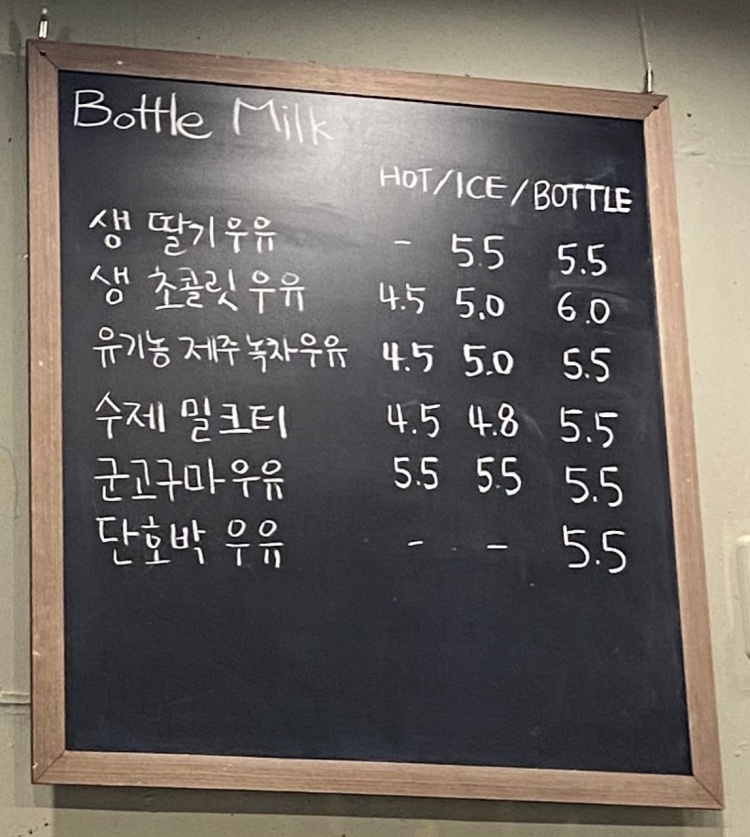 Bottle Milk
HOT/ICE/BOTTLE
생 딸기우유 - 5.5 5.5
생 초콜릿 우유 4.5 5.0 6.0
유기농 제주 녹차우유 4.5 5.0 5.5
수제 밀크티 4.5 4.8 5.5
군고구마우유 5.5 5.5 5.5
단호박 우유 - - 5.5